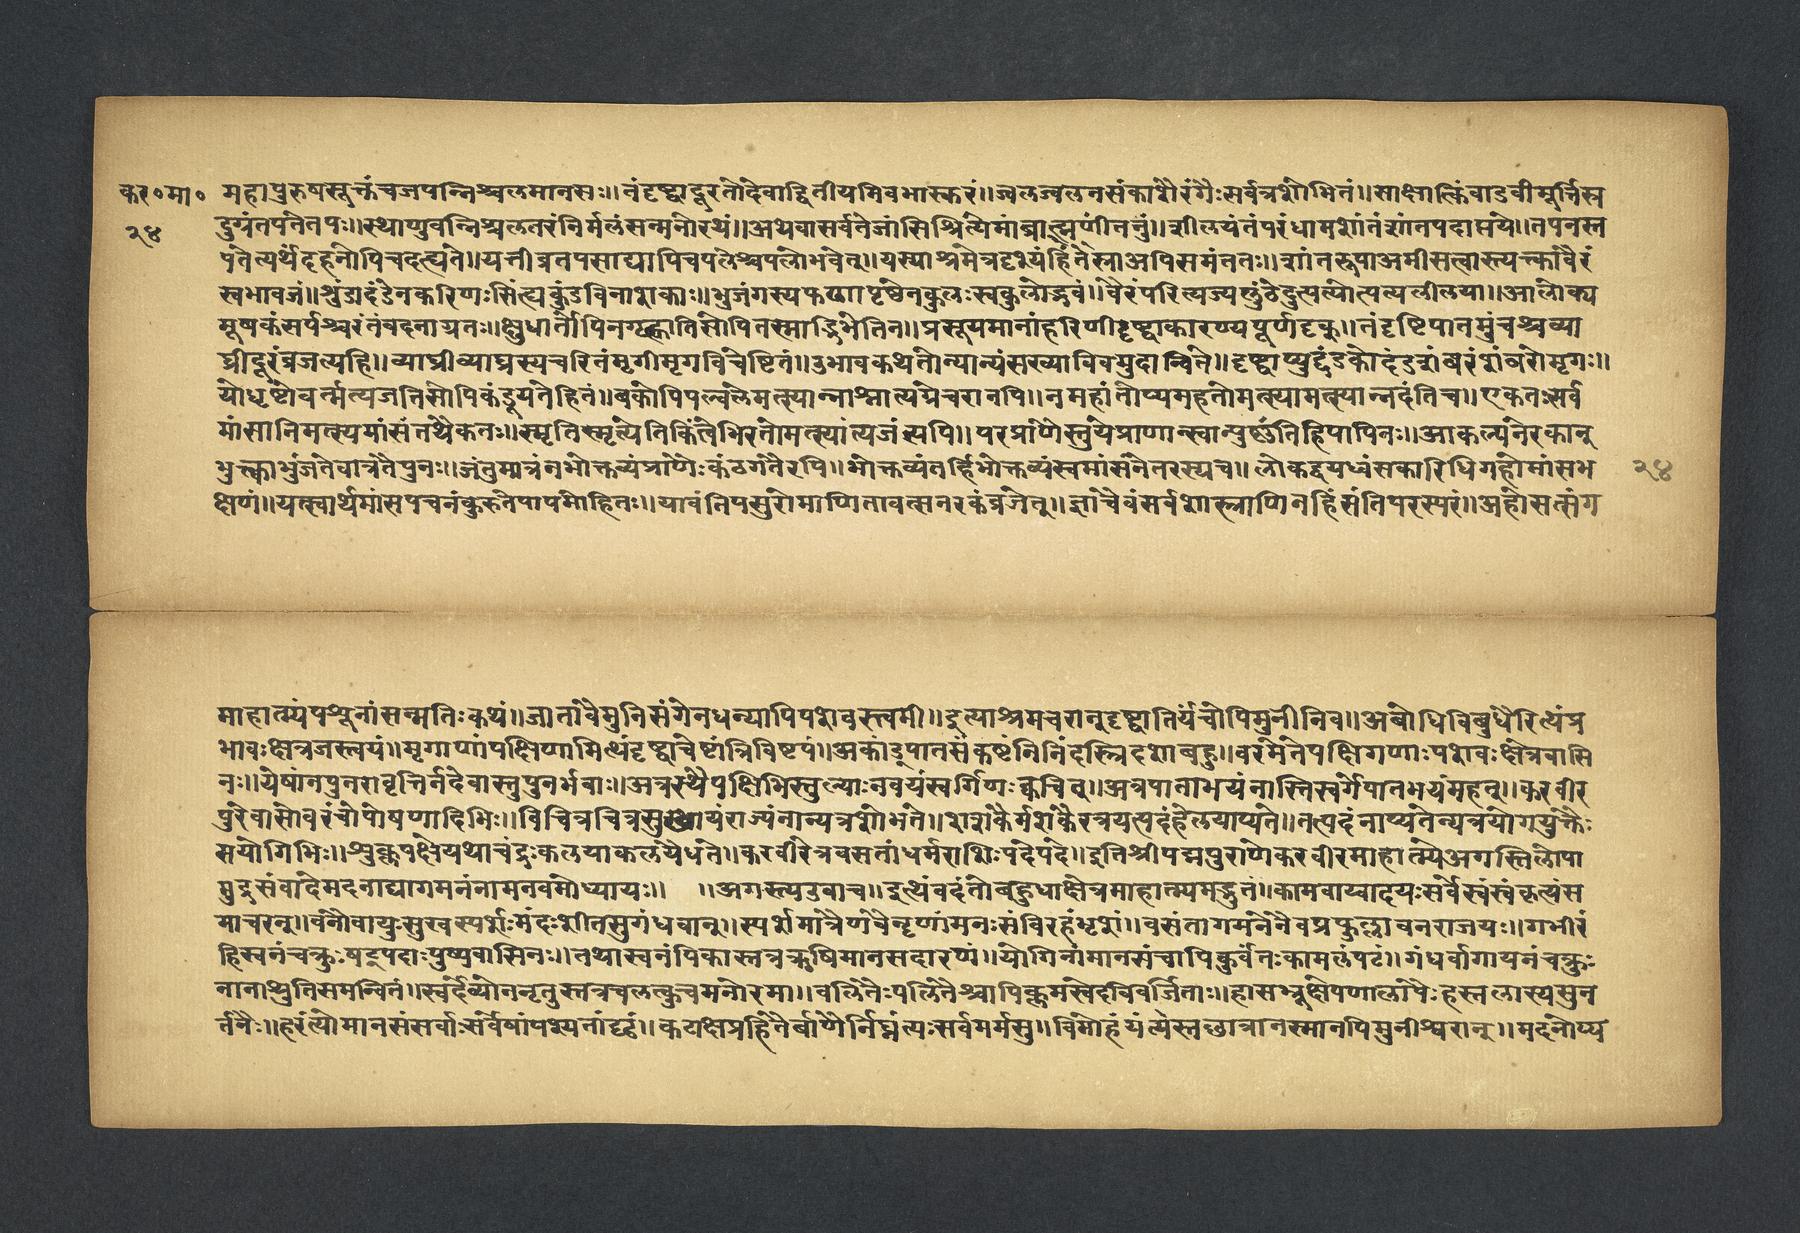 कर॰मा॰ महापुरुषसूक्तंचजपन्निश्चलमानसः॥तंदृष्ट्वादूरतोदेवाद्वितीयमिवभास्करं॥ज्वलज्वलनसंकाशैरंगैःसर्वत्रशोभितं॥साक्षात्किंवाडवीमूर्त्तिस्व
२४ दुयंतपंतेतपः॥स्थाणुवन्निश्चलतरंनिर्मलंसन्मनोरथं॥अथवासर्वतेजांसिश्रित्येमांब्राह्मणींतनुं॥शीलयंतंपरंधामशांतंशांतपदाप्तये॥तपनस्त
पतेत्यर्थंदहनोपिचदह्यते॥यत्तीव्रतपसाद्यापिचपलश्चपलोभवेत्॥यस्याश्रमेत्रदृश्यंहिंतेस्नाअपिसमंततः॥शांतरूपाअमीसत्वास्त्यक्त्कावैरं
स्वभावजं॥शुंडादंडेनकरिणःसिंहाकुंडविनाशकाः॥भुजंगस्यफणापृष्ठेनकुलःस्वकुलोद्भवं॥वैरंपरित्यज्यलुंठेदुत्पत्योत्पत्यलीलया॥आलोक्य
मूषकंसर्पश्चरंतंवदनाग्रतः॥क्षुधार्तोपिनगृह्णातिसोपितस्माद्बिभेतिन॥प्रसूयमानांहरिणींदृष्ट्वाकारुण्यपूर्णदृक्॥तंदृष्टिपातमुंचश्चव्या
घ्रीदूरंव्रजत्यहि॥व्याघ्रीव्याघ्रस्यचरितंमृगीमृगविचेष्टितं॥उभावकथतोन्यान्यंसख्याविवमुदान्विते॥दृष्ट्वाप्युद्दंडकोदंडशंबरंशबरोमृगः॥
योधृष्टोवर्त्मत्यजतिसोपिकंडूयतेहितं॥बकोपिपल्वलेमत्स्यान्नाश्नात्यग्रेचरानपि॥नमहांतोप्यमहतोमत्स्यामत्स्यान्नदंतिच॥एकतःसर्व
मांसानिमत्स्यमांसंतथैकतः॥स्मृतिस्मृत्येतिकिंतेभिरतोमत्स्यांत्यजंत्यपि॥परप्राणैस्तुयेप्राणान्स्वान्पुर्ष्णंतिहिपापिनः॥आकल्पंनरकान्
भुक्त्काभुंजतेवात्रतैपुनः॥जंतुमात्रंनभोक्तव्यंप्राणैःकंठगतैरपि॥भोक्तव्यंतर्हिभोक्तव्यंस्वमांसंनेतरस्यच॥लोकद्वयध्वंसकारिधिगहोमांसभ २४
क्षणं॥यत्स्वार्थमांसपचनंकुरुतेपापमोहितः॥यावंतिपसुरोमाणितावत्सनरकंव्रजेत्॥ज्ञांचैवंसर्वशास्त्राणिनहिंसंतिपरस्परं॥अहोसत्संग
माहात्म्यंपशूनांसन्मतिःकथं॥जातांवैमुनिसंगेनधन्यापिपशवस्त्वमी॥इत्याश्रमचरान्दृष्ट्वातिर्यंचोपिमुनीनिव॥अबोधिविबुधैरित्थंप्र
भावःक्षेत्रजस्त्वयं॥मृगाणांपक्षिणामित्थंदृष्ट्वाचेष्टांत्रिविष्टपं॥अकांडपातसंकष्टंनिनिंदस्त्रिदशाबहु॥वरमेतेपक्षिगणाःपशवःक्षेत्रवासि
नः॥येषांनपुनरावृत्तिर्नदेवास्तुपुनर्भवाः॥अत्रस्थैपक्षिभिस्तुल्याःनवयंस्वर्गिणःक्वचित्॥अत्रपाताभयंनास्तिस्वर्गेपातभयंमहत्॥करवीर
पुरेवासोवरंचोपोषणादिभिः॥विचित्रचित्रसुखायंराज्यंनान्यत्रशोभते॥शशकैर्मशकैरत्रयत्पदंहेलयाप्यते॥तत्पदंनाप्यतेन्यत्रयोगयुक्तैः
सयोगिभिः॥शुक्लपक्षेयथाचंद्रःकलयाकलयैधते॥करवीरेत्रवसतांधर्मराशिःपदेपदे॥इतिश्रीपद्मपुराणेकरवीरमाहात्म्येअगस्तिलोपा
मुद्रसंवादेमदनाद्यागमनंनामनवमोध्यायः॥ ॥अगस्त्यउवाच॥इत्थंवदंतोबहुधाक्षेत्रमाहात्म्यमद्भुतं॥कामवाय्वादयःसर्वेस्वंस्वंकृत्यंस
माचरन्॥ववौवायुःसुखस्पर्शःमंदःशीतसुगंधवान्॥स्पर्शमात्रेणवैनृणांमनःसंविरहंभृशं॥वसंतागमनेनैवप्रफुल्लावनराजयः॥गभीरं
हिस्वनंचक्रुःषट्पदाःपुष्पवासिनः॥तथास्वनंपिकास्तत्रऋषिमानसदारणं॥योगिनांमानसंचापिकुर्वंतःकामलंपटं॥गंधर्वागायनंचक्रुः
नानाश्रुतिसमन्वितं॥स्वर्देव्योननृतुस्तत्रचलत्कुचमनोरमा॥वलितैःपलितैश्चापिक्लमस्वेदविवर्जिताः॥हासभ्रूक्षेपणालापैःहस्तलास्यसुन
र्तनैः॥हरंत्योमानसंसर्वाःसर्वेषांपश्यतांदृढं॥कटाक्षप्रहितैर्बाणैर्निघ्नंत्यःसर्वमर्मसु॥विमोहयंत्यस्तत्रान्नानस्मानपिमुनीश्वरान्॥मदनोप्य